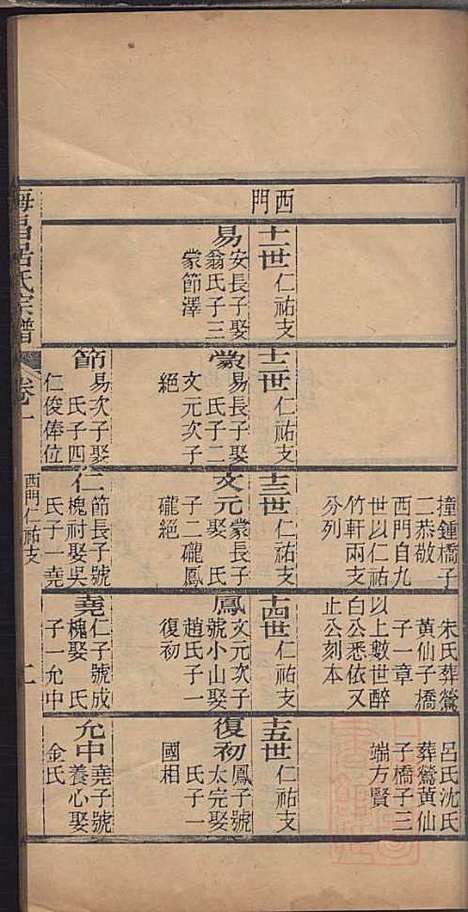 西門
十一世 仁祐支
易 安長子娶
翁氏子三
蒙節澤
十二世 仁祐支
蒙 易長子娶
氏子二
文元次子
絕
節 易次子娶
氏子四
仁俊俸位
撞鍾橋子
二恭敬
西門自九
世以仁祐
竹軒兩支
分列
十三世 仁祐支
文元 蒙長子
娶 氏
子二礲鳳
礲絕
仁 節長子號
槐村娶吳
氏子一堯
朱氏葬鶯
黃仙子橋
子一章
以上數世醉
白公悉依又
止公刻本
十四世 仁祐支
鳳 文元次子
號小山娶
趙氏子一
復初
堯 仁子號成
槐娶 氏
子一允中
呂氏沈氏
葬鶯黃仙
子橋子三
端方賢
十五世 仁祐支
復初 鳳子號
太完娶
氏子一
國相
允中 堯子號
養心娶
金氏
氏宗譜
卷一
西門仁祐支